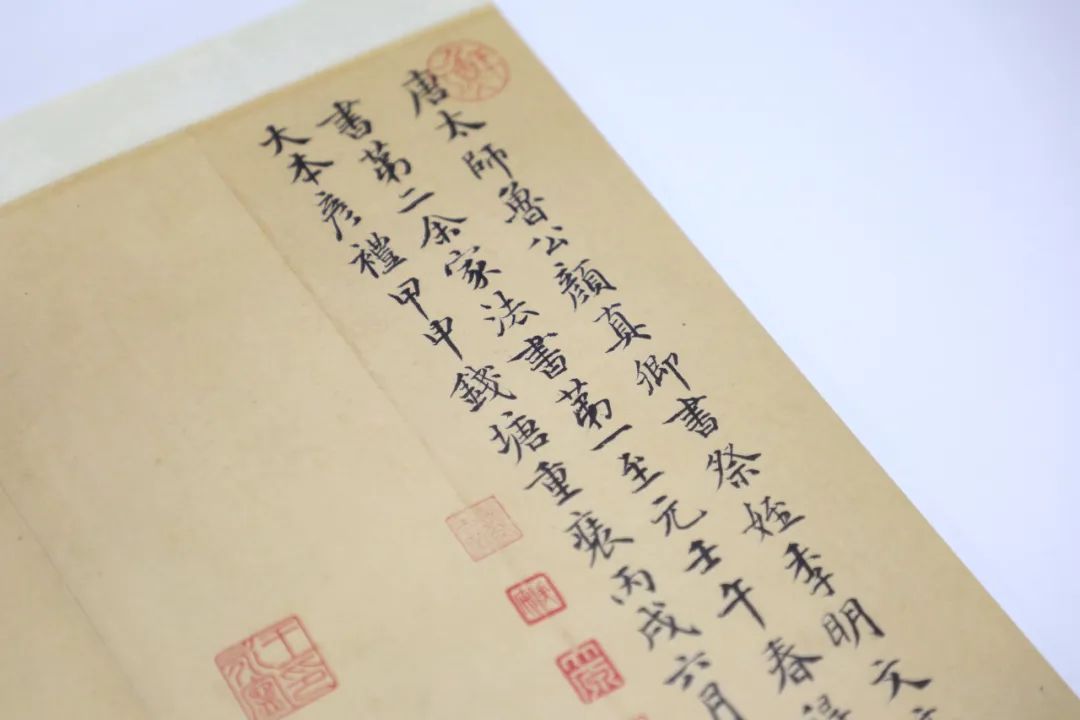 唐太師魯公顏真卿書祭姪季明文
書第二余家法書第一至元壬午春得
大本彦禮甲申錢塘重裝丙戌六月